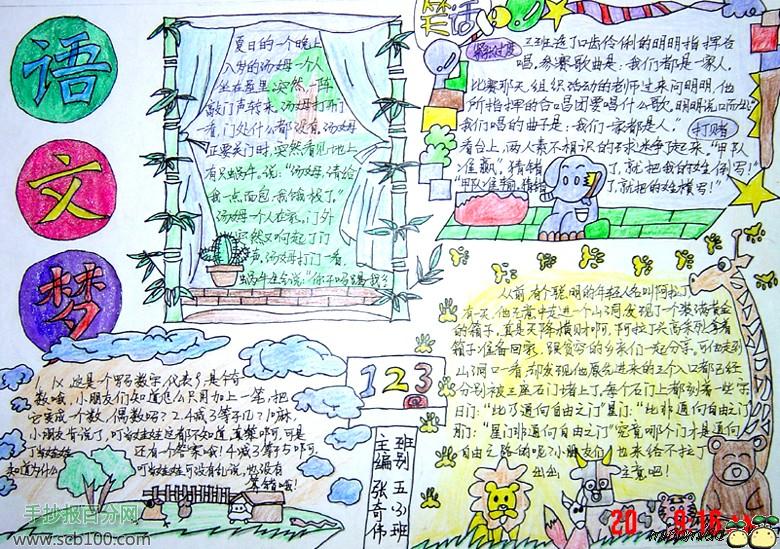 语
文
梦
夏日的一个晚上
八岁的汤姆一个人
坐在屋里,突然,一阵
敲门声转来,汤姆打开门一
看,门处什么都没有,汤姆
正要关门时,突然看见地上
有只蜗牛,说:“汤姆,请给
我一点面包,我饿极了。”
汤姆一个人在家。门外
突然又响起了门
声,汤姆打开门一看,
蜗牛生气说:“你干吗踢我
笑话
王班选了口齿伶俐的明明指挥合
唱,参赛歌曲是:我们都是一家人。
比赛那天,组织活动的老师过来问明明,他
所指挥的合唱团要唱什么歌,明明说口而出:
“我们唱的曲子是:我们一家都是人。”
打赌
看台上,两人素不相识的球迷争起来,“甲队
准赢,猜错了,就把我的姓倒写!”
“甲队准输,猜错了,就把的姓横写!”
从前,有个聪明的年轻人名叫阿拉丁。
有一天,他无意中走进一个山洞,发现了一箱满黄金
的箱子。真是天降横财啊,阿拉丁兴高采烈拿着
箱子准备回家,跟贫穷的乡亲们一起分享。可他走到
山洞口一看,却发现他原台进来的三个入口都已经
分别被三座石门堵上了。每个石门上都刻着一些字,
日门:“此乃通向自由之门”星门:“此非通向自由之门”
月门:“星门非通向自由之门”究竟哪个门才是通向
自由之路的呢?小朋友们,也来给不拉丁
出出主意吧!
1.Ⅸ,这是个罗马数字,代表9,是个奇
数哦,小朋友们知道怎么只用加上一笔,把
它变成个数,偶数吗?2.4减3等于几?1嘛,
小朋友肯说了,叮当娃娃这都不知道,真笨啊。可是
叮当娃娃还有个答案哦!4减3等于5啊。
知道为什么叮当娃娃可没有乱说,也没有
算错哦!
123
班别 五(3)班
主编 张奇伟
手抄报百分网
www.scb100.com